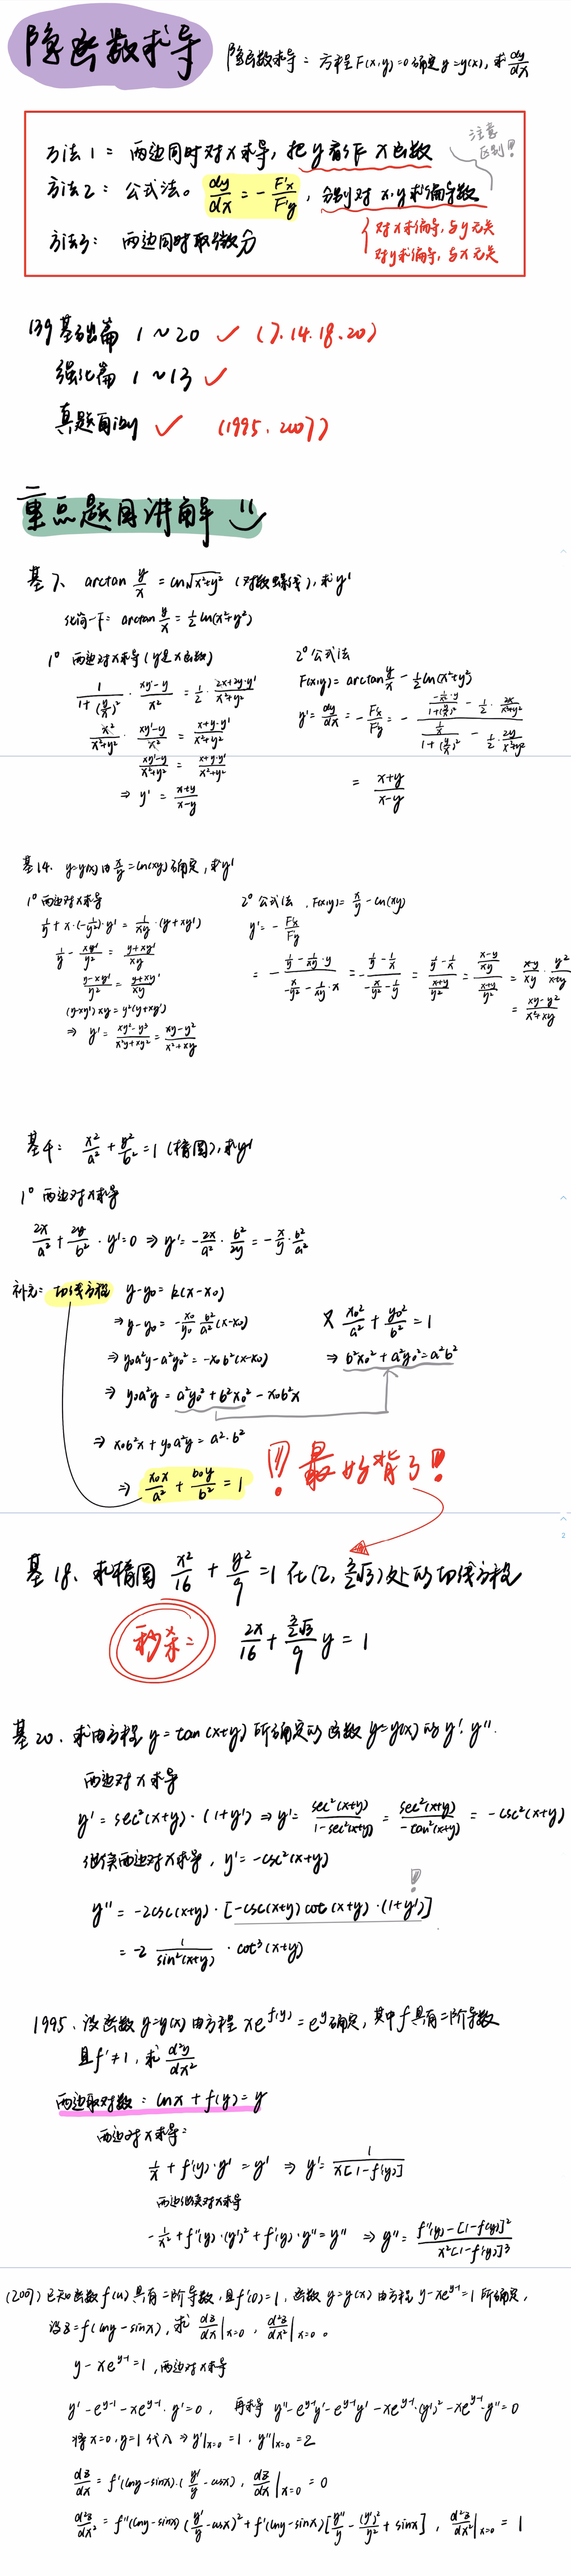 隐函数求导
隐函数求导：方程F(x,y)=0确定y=y(x), 求dy/dx
方法1：两边同时对x求导, 把y看作x函数
注意区别!!
方法2：公式法。dy/dx = -F'x/F'y, 分别对x,y求偏导数
对x求偏导, 与y无关
对y求偏导, 与x无关
方法3：两边同时取微分
139基础篇 1~20 ✓ (7.14.18.20)
强化篇 1~13 ✓
真题 ✓ (1995、2007)
重点题目讲解
基7、arctan y/x = ln√(x²+y²) (对数螺线), 求y'
化简一下: arctan y/x = 1/2 ln(x²+y²)
1° 两边对x求导(y是x函数)
1/(1+(y/x)²) · (xy'-y)/x² = 1/2 · (2x+2y·y')/(x²+y²)
x²/(x²+y²) · (xy'-y)/x² = (x+y·y')/(x²+y²)
(xy'-y)/(x²+y²) = (x+y·y')/(x²+y²)
⇒ y' = (x+y)/(x-y)
2° 公式法
F(x,y) = arctan y/x - 1/2 ln(x²+y²)
y' = dy/dx = -Fx/Fy = - (-1/x²·y/(1+(y/x)²) - 1/2 · 2x/(x²+y²)) / (1/x/(1+(y/x)²) - 1/2 · 2y/(x²+y²))
= (x+y)/(x-y)
基14. y=y(x)由x/y=ln(xy)确定, 求y'
1° 两边对x求导
1/y + x·(-1/y²)·y' = 1/xy · (y+xy')
1/y - xy'/y² = (y+xy')/xy
(y-xy')/y² = (y+xy')/xy
(y-xy')xy = y²(y+xy')
⇒ y' = (xy²-y³)/(x²y+xy²) = (xy-y²)/(x²+xy)
2° 公式法, F(x,y) = x/y - ln(xy)
y' = -Fx/Fy
= -(1/y - 1/xy·y)/(-x/y² - 1/xy·x) = -(1/y - 1/x)/(-x/y² - 1/y) = (1/y - 1/x)/((x+y)/y²) = ((x-y)/xy)/((x+y)/y²) = (x-y)/xy · y²/(x+y)
= (xy-y²)/(x²+xy)
基4: x²/a² + y²/b² = 1 (椭圆), 求y'
1° 两边对x求导
2x/a² + 2y/b² · y' = 0 ⇒ y' = -2x/a² · b²/2y = -x/y · b²/a²
补充: 切线方程 y-y₀ = k(x-x₀)
⇒ y-y₀ = -x₀/y₀ b²/a² (x-x₀)
⇒ y₀a²y - a²y₀² = -x₀b²(x-x₀)
⇒ y₀a²y = a²y₀² + b²x₀² - x₀b²x
又 x₀²/a² + y₀²/b² = 1
⇒ b²x₀² + a²y₀² = a²b²
⇒ x₀b²x + y₀a²y = a²·b²
⇒ x₀x/a² + b₀y/b² = 1
!! 最好背了!
2
基18. 求椭圆 x²/16 + y²/9 = 1 在(2, 3/2√3)处的切线方程
秒杀: 2x/16 + (3/2√3)/9 y = 1
基20. 求由方程 y = tan(x+y) 所确定的函数 y=y(x) 的 y'. y''.
两边对x求导
y' = sec²(x+y)·(1+y') ⇒ y' = sec²(x+y)/(1-sec²(x+y)) = sec²(x+y)/(-tan²(x+y)) = -csc²(x+y)
继续两边对x求导, y' = -csc²(x+y)
!
y'' = -2csc(x+y)·[-csc(x+y)cot(x+y)·(1+y')]
= -2 1/sin²(x+y) · cot³(x+y)
1995. 设函数y=y(x)由方程 xe^f(y) = e^y确定, 其中f具有二阶导数
且f'≠1, 求 d²y/dx²
两边取对数: lnx + f(y) = y
两边对x求导:
1/x + f'(y)·y' = y' ⇒ y' = 1/(x[1-f'(y)])
两边继续对x求导
-1/x² + f''(y)·(y')² + f'(y)·y'' = y'' ⇒ y'' = (f''(y) - [1-f'(y)]²)/(x²[1-f'(y)]³)
(2007) 已知函数f(u)具有二阶导数, 且f'(0)=1, 函数y=y(x)由方程 y-xe^(y-1)=1 所确定,
设z=f(lny-sinx), 求 dz/dx|x=0 , d²z/dx²|x=0 。
y - xe^(y-1) = 1, 两边对x求导
y' - e^(y-1) - xe^(y-1)·y' = 0, 再求导 y'' - e^(y-1)y' - e^(y-1)y' - xe^(y-1)·(y')² - xe^(y-1)·y'' = 0
将x=0, y=1代入 ⇒ y'|x=0 = 1, y''|x=0 = 2
dz/dx = f'(lny-sinx)·(y'/y - cosx), dz/dx|x=0 = 0
d²z/dx² = f''(lny-sinx)(y'/y - cosx)² + f'(lny-sinx)[y''/y - (y')²/y² + sinx], d²z/dx²|x=0 = 1